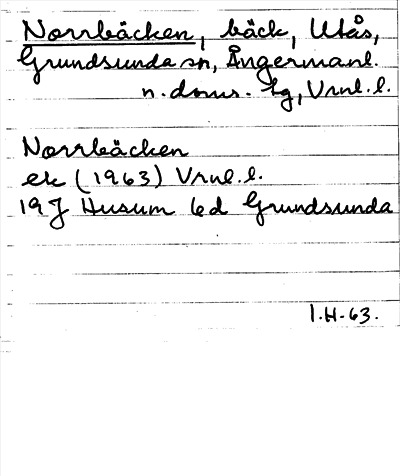 Norrbäcken, bäck, Utås,
Grundsunda sn, Ångermanl.
n. dmrs. hg, Vrnl. l.
Norrbäcken
ek (1963) Vrnl. l.
19J Husum 6d Grundsunda
I.H-63.